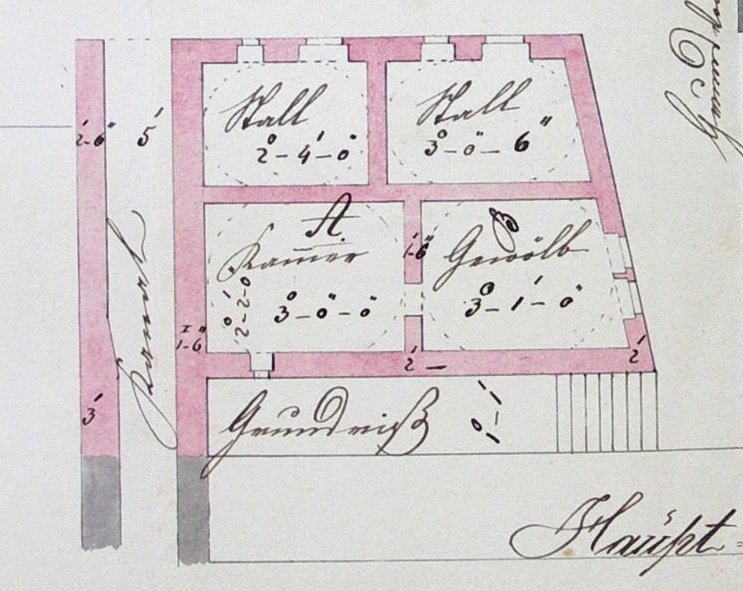 Stall
2°-4'-0"
Stall
3°-0"-6"
2'-6"
5'
Kanal
A
Kam̅er
3°-0"-0"
0°-2'-2-0
1'-6"
B
Gewölb
3°-1'-0"
1'-6"
2'-
2'
3'
Grundriß
1°-1'
Haupt-